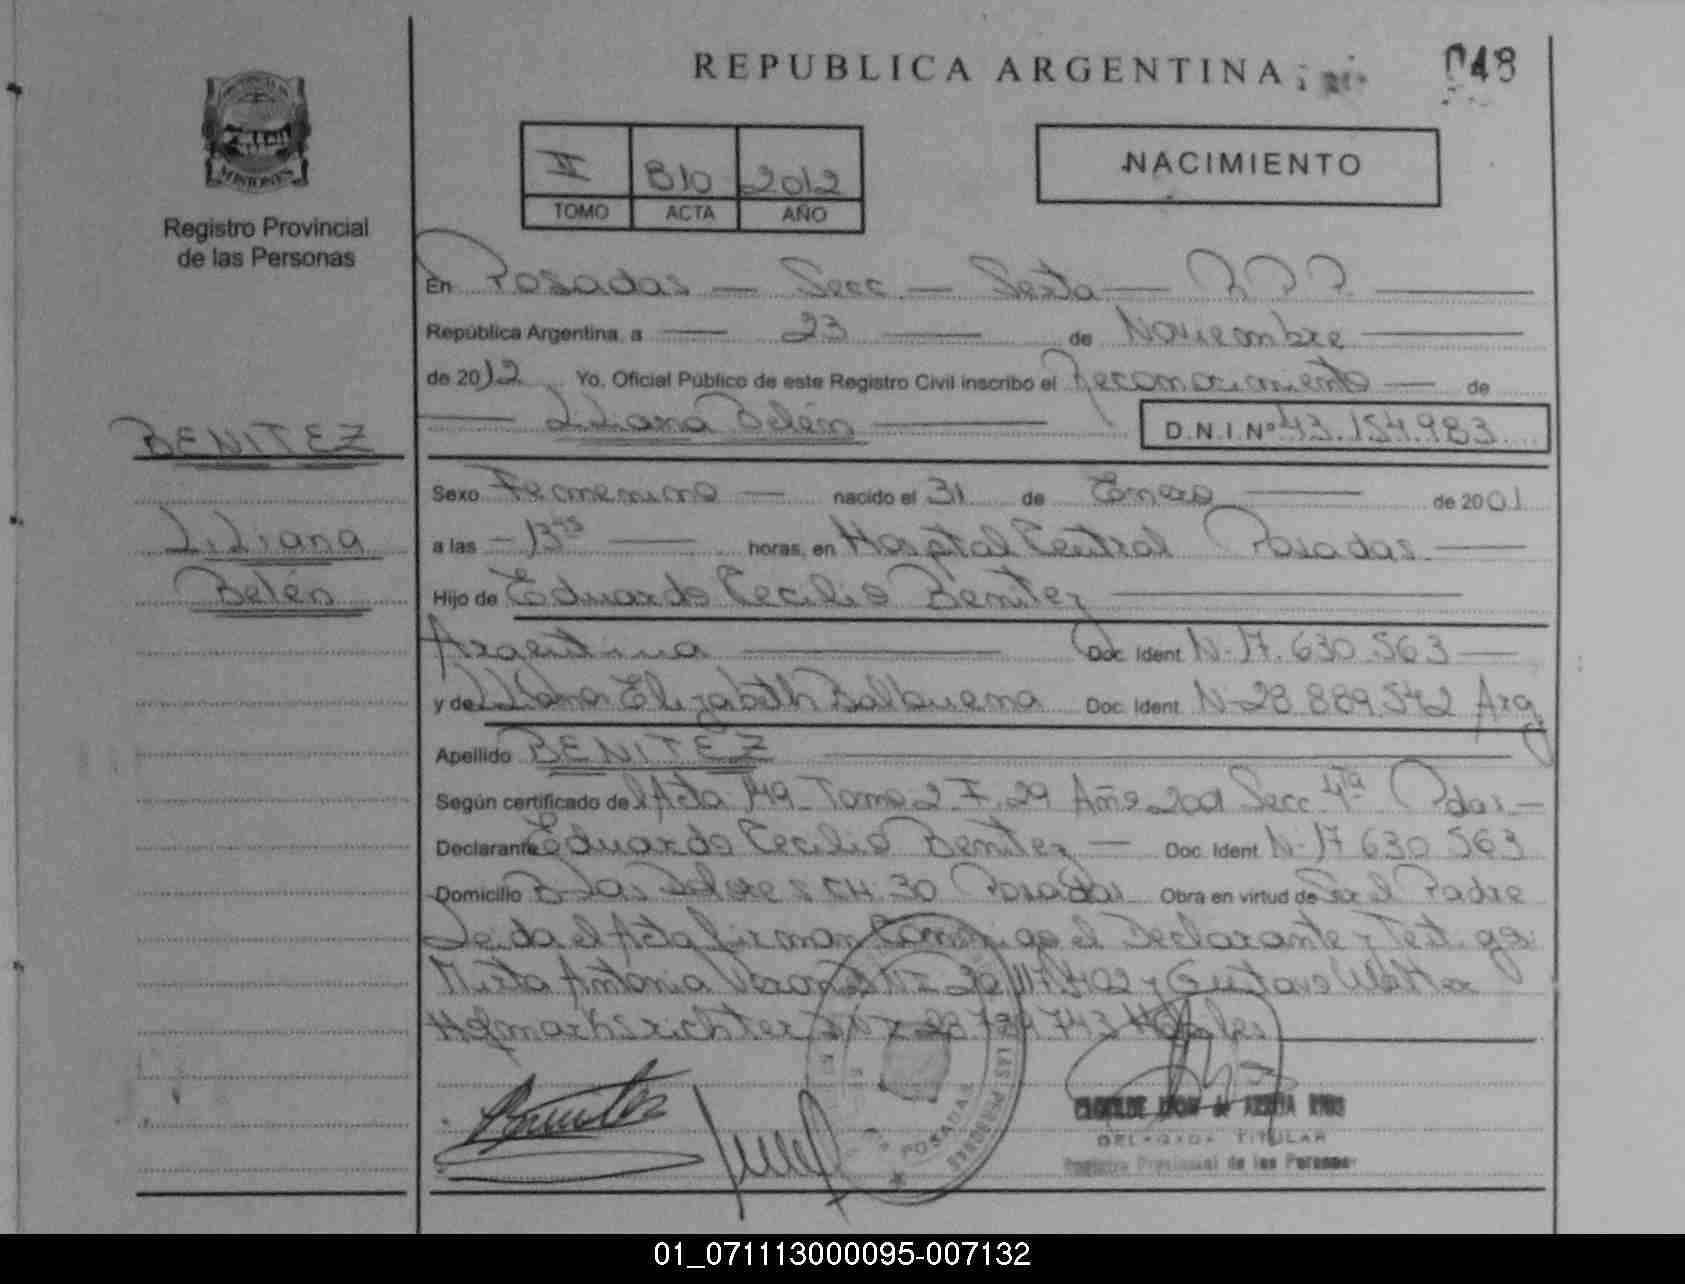 REPUBLICA ARGENTINA
048
MISIONES
Registro Provincial
de las Personas
II 810 2012
TOMO ACTA AÑO
NACIMIENTO
En Posadas — Secc — Sexta —
República Argentina, a — 23 — de Noviembre —
de 2012 Yo, Oficial Público de este Registro Civil inscribo el Reconocimiento — de
— Liliana Belén — D.N.I. Nº 43.154.983
BENITEZ
Liliana
Belén
Sexo Femenino — nacido el 31 de Enero — de 2001
a las — 13 45 — horas, en Hospital Central Posadas —
Hijo de Eduardo Cecilio Benitez —
Argentina — Doc. Ident. N- 17.630.563 —
y de Liliana Elizabeth Balbuena Doc. Ident. N- 28.889.542 Arg
Apellido BENITEZ —
Según certificado del Acta 149 - Tomo 2 - F. 29 Año 2001 Secc 4ta Pdas —
Declarante Eduardo Cecilio Benitez — Doc. Ident. N- 17.630.563
Domicilio CH. 30 Posadas Obra en virtud de Ser el Padre
Leida el Acta firman conmigo el Declarante y Test. gs:
Mirta Antonia y Gustavo Walter
POSADAS
DELEGADA TITULAR
Registro Provincial de las Personas
01_071113000095-007132